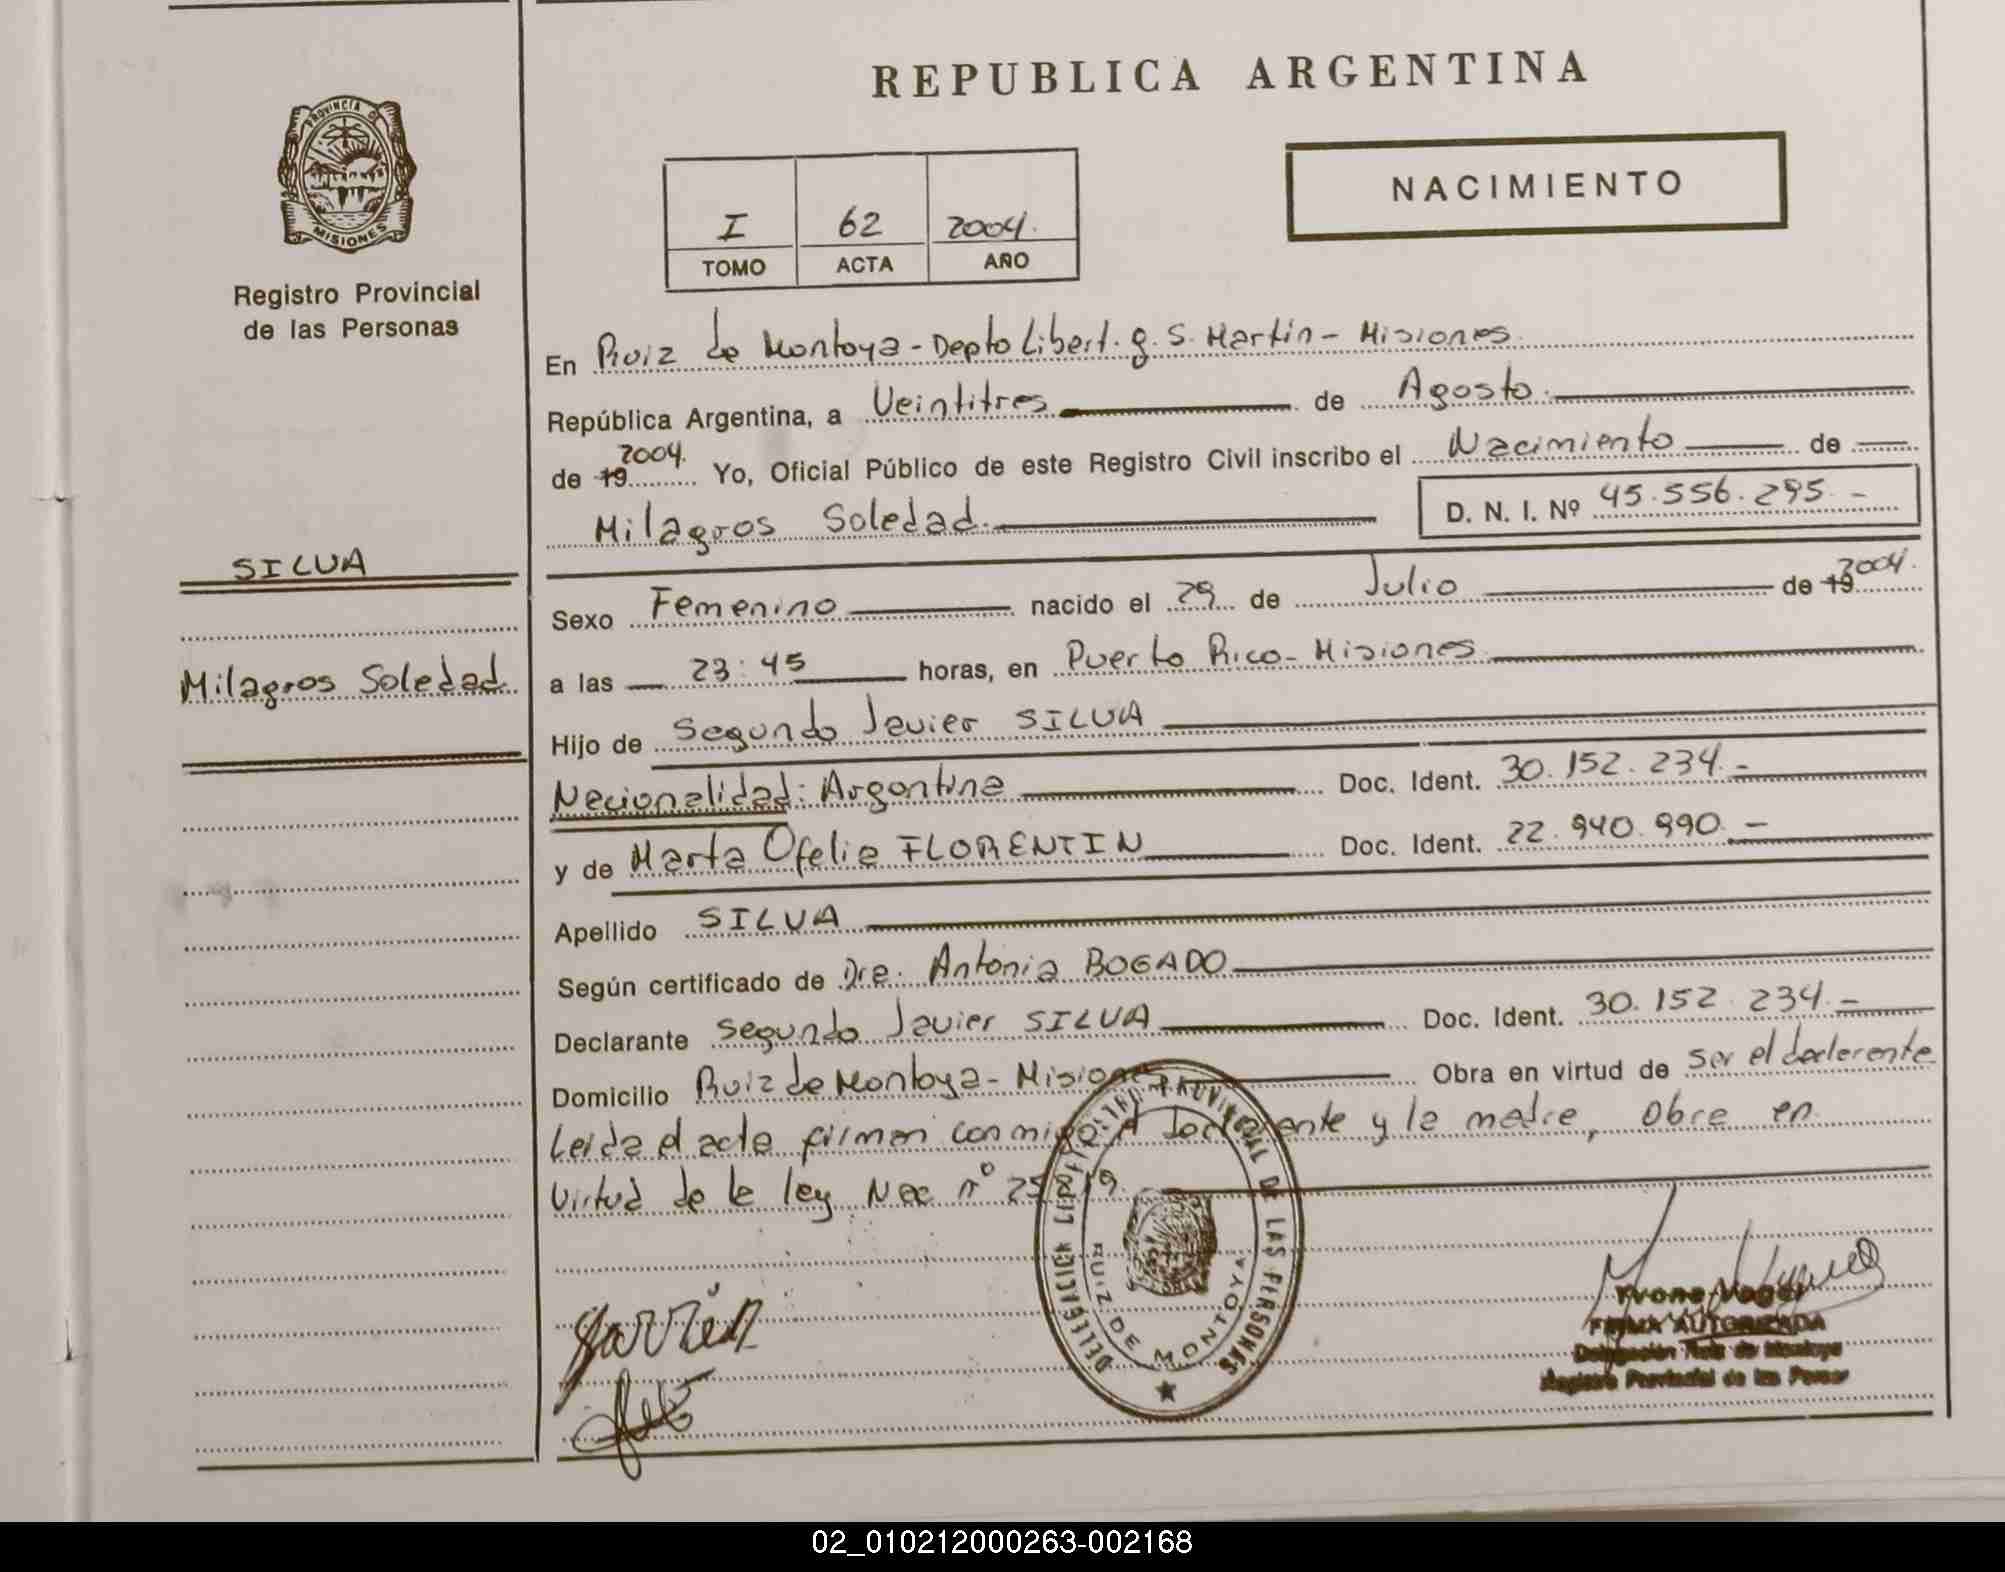 REPUBLICA ARGENTINA
PROVINCIA DE
MISIONES
Registro Provincial
de las Personas
NACIMIENTO
I 62 2004.
TOMO ACTA AÑO
En Ruiz de Montoya - Depto Libert. g. S. Martin - Misiones.
República Argentina, a Veintitres de Agosto.
de 19 2004. Yo, Oficial Público de este Registro Civil inscribo el Nacimiento de
Milagros Soledad. D. N. I. Nº 45.556.295.-
SILVA
Milagros Soledad.
Sexo Femenino nacido el 29 de Julio de 19 2004.
a las 23:45 horas, en Puerto Rico - Misiones.
Hijo de Segundo Javier SILVA
Nacionalidad: Argentina Doc. Ident. 30.152.234.-
y de Marta Ofelia FLORENTIN Doc. Ident. 22.940.990.-
Apellido SILVA
Según certificado de Dra. Antonia BOGADO
Declarante Segundo Javier SILVA Doc. Ident. 30.152.234.-
Domicilio Ruiz de Montoya - Misiones Obra en virtud de Ser el declarante
Leida el acta firman conmigo el declarante y la madre, Obra en
Virtud de la ley Nac nº
DELEGACION REGISTRO PROVINCIAL DE LAS PERSONAS
RUIZ DE MONTOYA
Yvone Vogel
FIRMA AUTORIZADA
Delegación Ruiz de Montoya
Registro Provincial de las Person
02_010212000263-002168